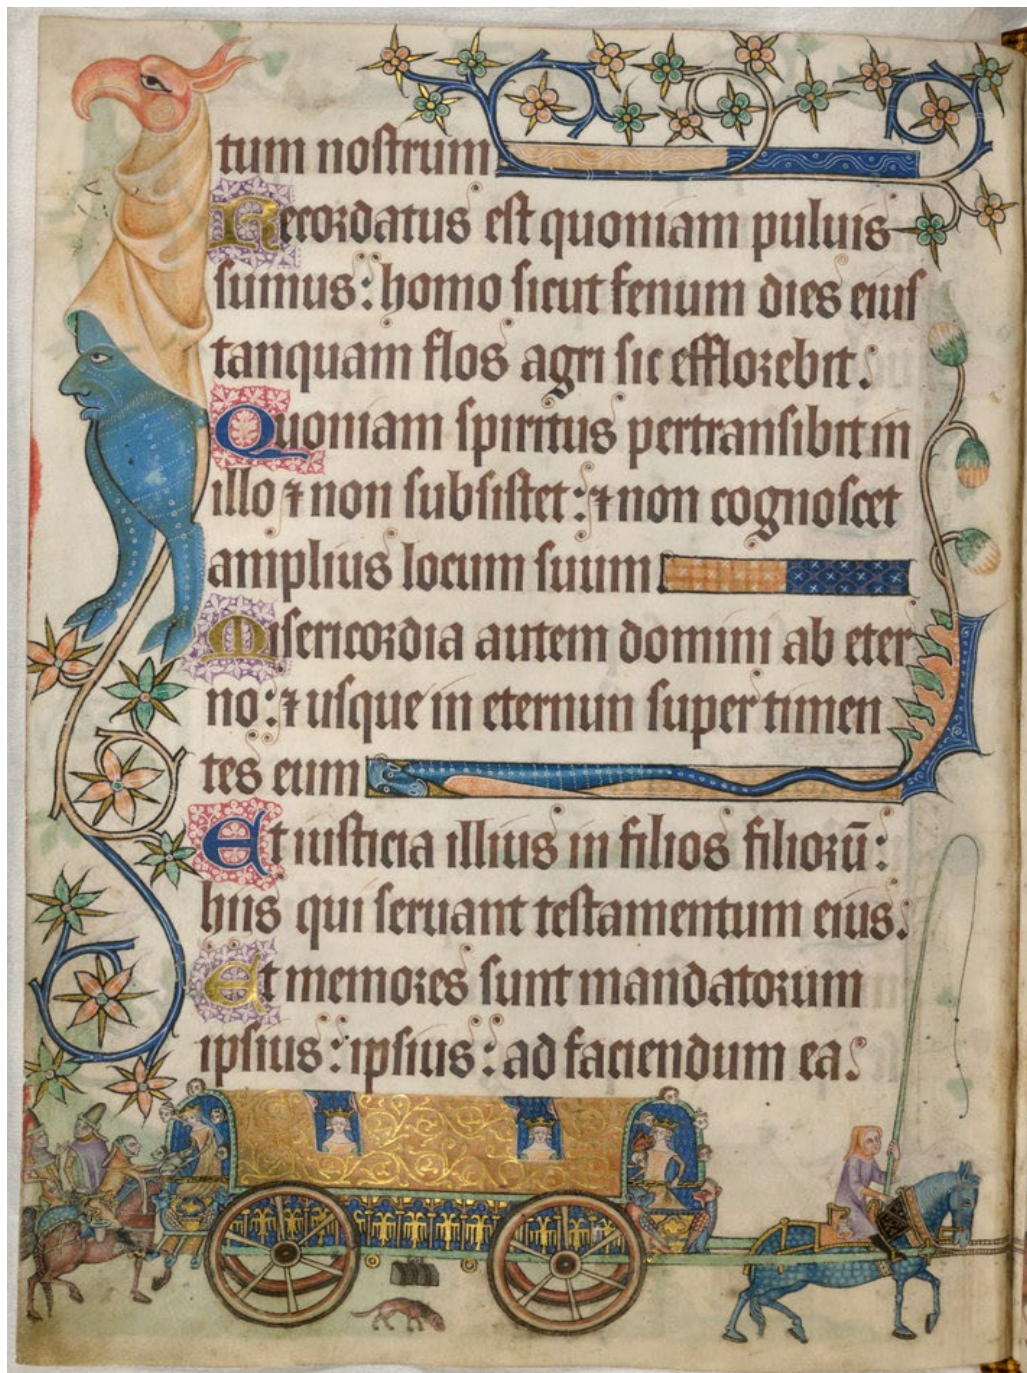 tum nostrum
Recordatus est quoniam puluis
sumus: homo sicut fenum dies eius
tanquam flos agri sic efflorebit.
Quoniam spiritus pertransibit in
illo ⁊ non subsistet: ⁊ non cognoscet
amplius locum suum
Misericordia autem domini ab eter
no: ⁊ usque in eternun super timen
tes eum
Et iusticia illius in filios filiorū:
hiis qui seruant testamentum eius.
Et memores sunt mandatorum
ipsius: ipsius: ad faciendum ea.